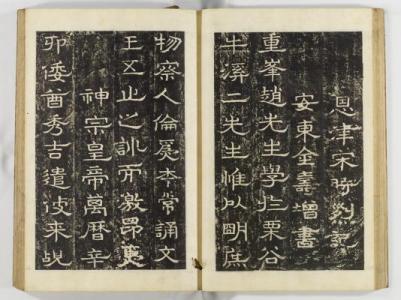 恩津宋時烈記
安東金壽增書
重峯趙先生學於栗谷
牛溪二先生惟以明庶
物察人倫爲本常誦文
王五止之訓而激昂
神宗皇帝萬曆辛
卯倭酋秀吉遣使來覘